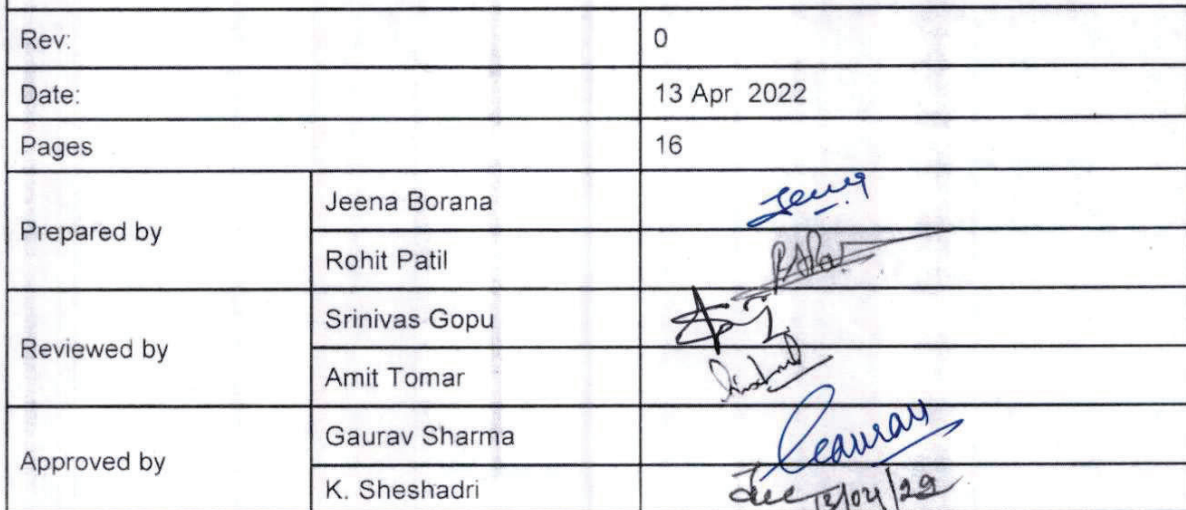 Rev: 0
Date: 13 Apr 2022
Pages 16
Prepared by
Jeena Borana
Rohit Patil
Reviewed by
Srinivas Gopu
Amit Tomar
Approved by
Gaurav Sharma Gaurav
K. Sheshadri